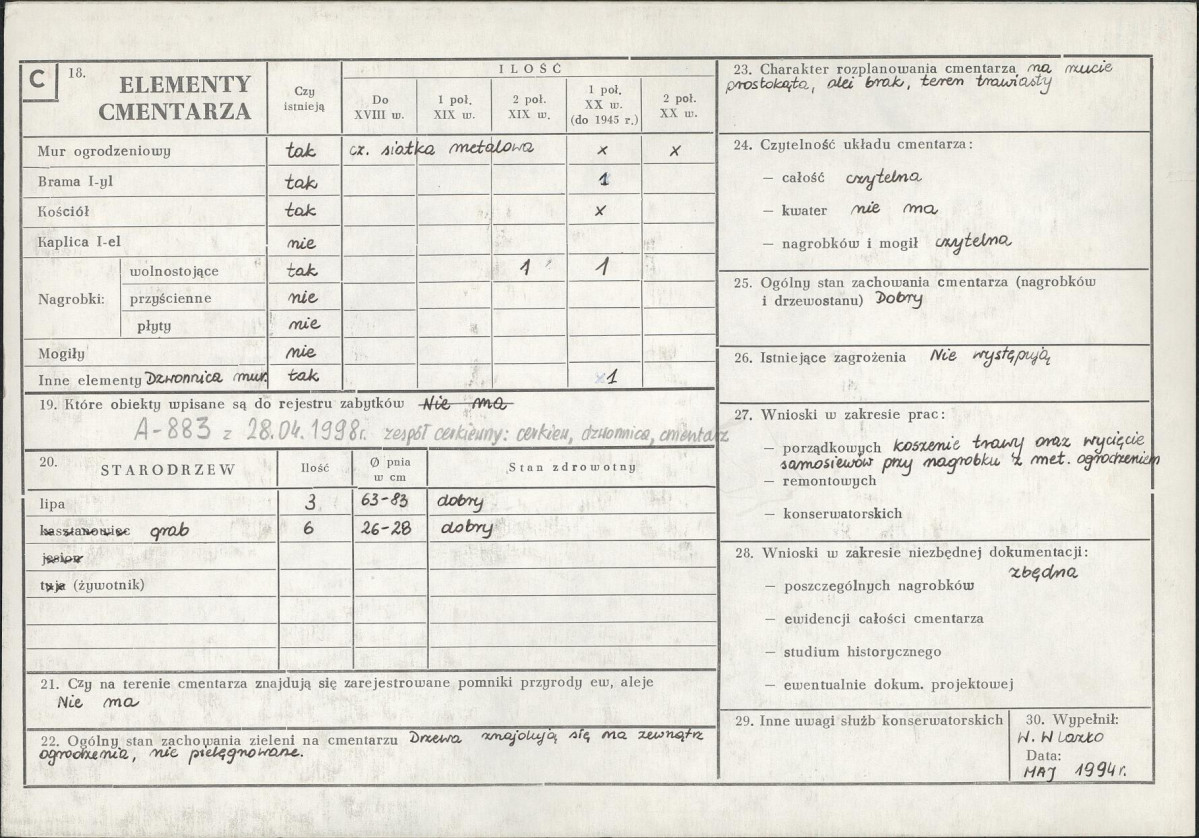 C
18. ELEMENTY CMENTARZA
Czy istnieją
ILOŚĆ
Do XVIII w.
1 poł. XIX w.
2 poł. XIX w.
1 poł. XX w. (do 1945 r.)
2 poł. XX w.
Mur ogrodzeniowy tak cz. siatka metalowa x x
Brama I-yl tak 1
Kościół tak x
Kaplica I-el nie
Nagrobki:
wolnostojące tak 1 1
przyścienne nie
płyty nie
Mogiły nie
Inne elementy Dzwonnica mur. tak 1
19. Które obiekty wpisane są do rejestru zabytków Nie ma
A-883 z 28.04.1998r. zespół cerkiewny: cerkiew, dzwonnica, cmentarz
20. STARODRZEW Ilość Ø pnia w cm Stan zdrowotny
lipa 3 63-83 dobry
kasztanowiec grab 6 26-28 dobry
jesion
tuja (żywotnik)
21. Czy na terenie cmentarza znajdują się zarejestrowane pomniki przyrody ew, aleje
Nie ma
22. Ogólny stan zachowania zieleni na cmentarzu Drzewa znajdują się na zewnątrz
ogrodzenia, nie pielęgnowane.
23. Charakter rozplanowania cmentarza na rzucie
prostokąta, alei brak, teren trawiasty
24. Czytelność układu cmentarza:
— całość czytelna
— kwater nie ma
— nagrobków i mogił czytelna
25. Ogólny stan zachowania cmentarza (nagrobków
i drzewostanu) Dobry
26. Istniejące zagrożenia Nie występują
27. Wnioski w zakresie prac:
— porządkowych koszenie trawy oraz wycięcie
samosiewów przy nagrobku z met. ogrodzeniem
— remontowych
— konserwatorskich
28. Wnioski w zakresie niezbędnej dokumentacji:
zbędna
— poszczególnych nagrobków
— ewidencji całości cmentarza
— studium historycznego
— ewentualnie dokum. projektowej
29. Inne uwagi służb konserwatorskich
30. Wypełnił:
W. Wlazło
Data:
MAJ 1994r.